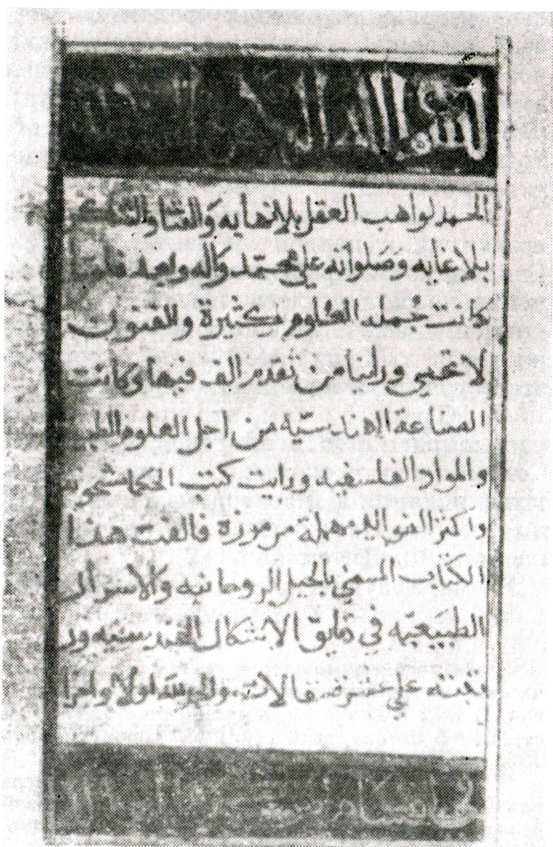 بسم الله الرحمن الرحيم
الحمد لواهب العقل بلا نهايه والثنا والشكر
بلا غايه وصلواته علي محمد وآله وبعد فلما
كانت جملة العلوم كثيرة والفنون
لا تحصي وراينا من تقدم الف فيها وكانت
الصناعة الهندسيه من اجل العلوم
والمواد الفلسفيه ورايت كتب الحكما مشحونه
واكثر الفوايد مهملة مرموزة فالفت هذا
الكتاب المسمي بالحيل الروحانيه والاسرار
الطبيعيه في دقايق الاشكال الهندسيه ور
تبته علي عشرة مقالات ولله اولا واخرا